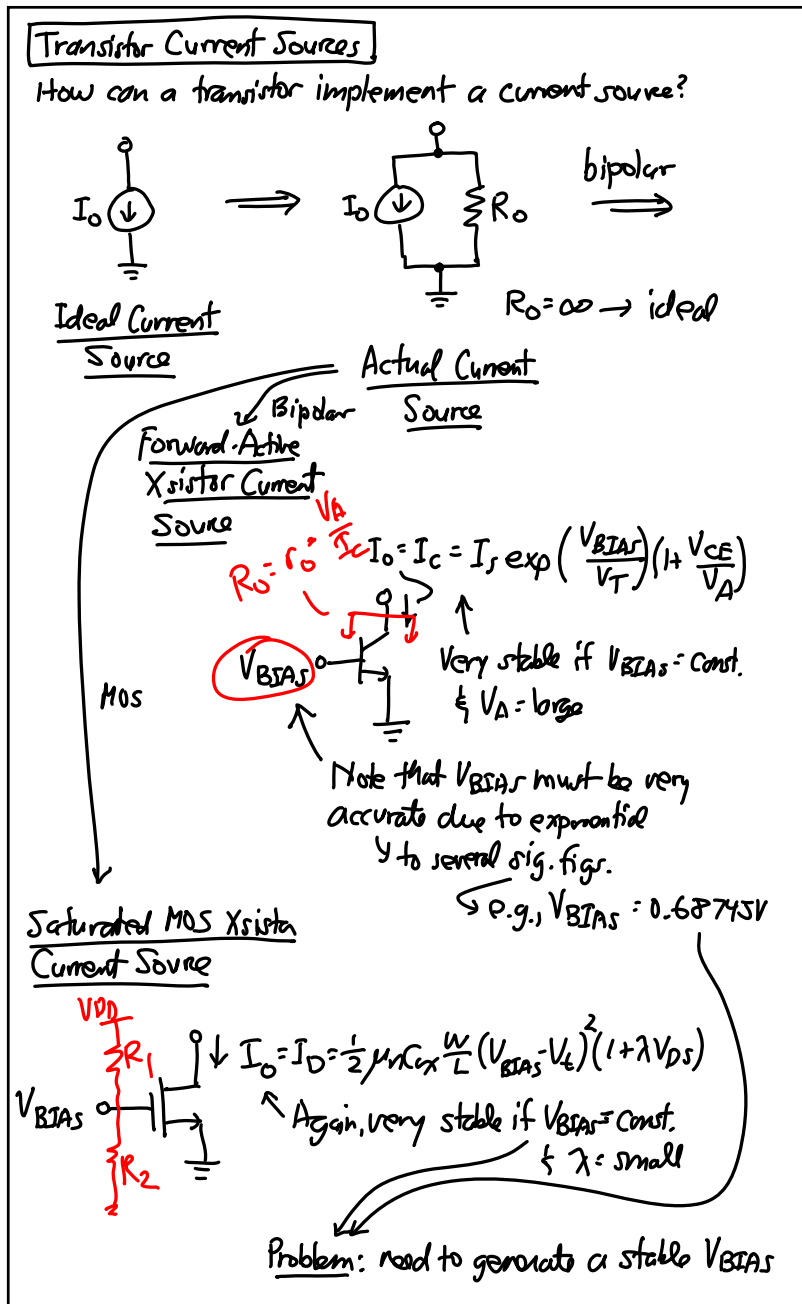 Transistor Current Sources
How can a transistor implement a current source?
I₀
I₀
R₀
bipolar
R₀=∞ → ideal
Ideal Current
Source
Actual Current
Source
Bipolar
Forward-Active
Xsistor Current
Source
R₀=r₀=VA/IC
I₀=IC=IS exp(VBIAS/VT)(1+VCE/VA)
VBIAS
Very stable if VBIAS=Const.
& VA=large
MOS
Note that VBIAS must be very
accurate due to exponential
to several sig. figs.
e.g., VBIAS=0.68745V
Saturated MOS Xsistor
Current Source
VDD
R₁
VBIAS
R₂
I₀=ID=½μnCox W/L (VBIAS-Vt)²(1+λVDS)
Again, very stable if VBIAS=Const.
& λ=small
Problem: need to generate a stable VBIAS